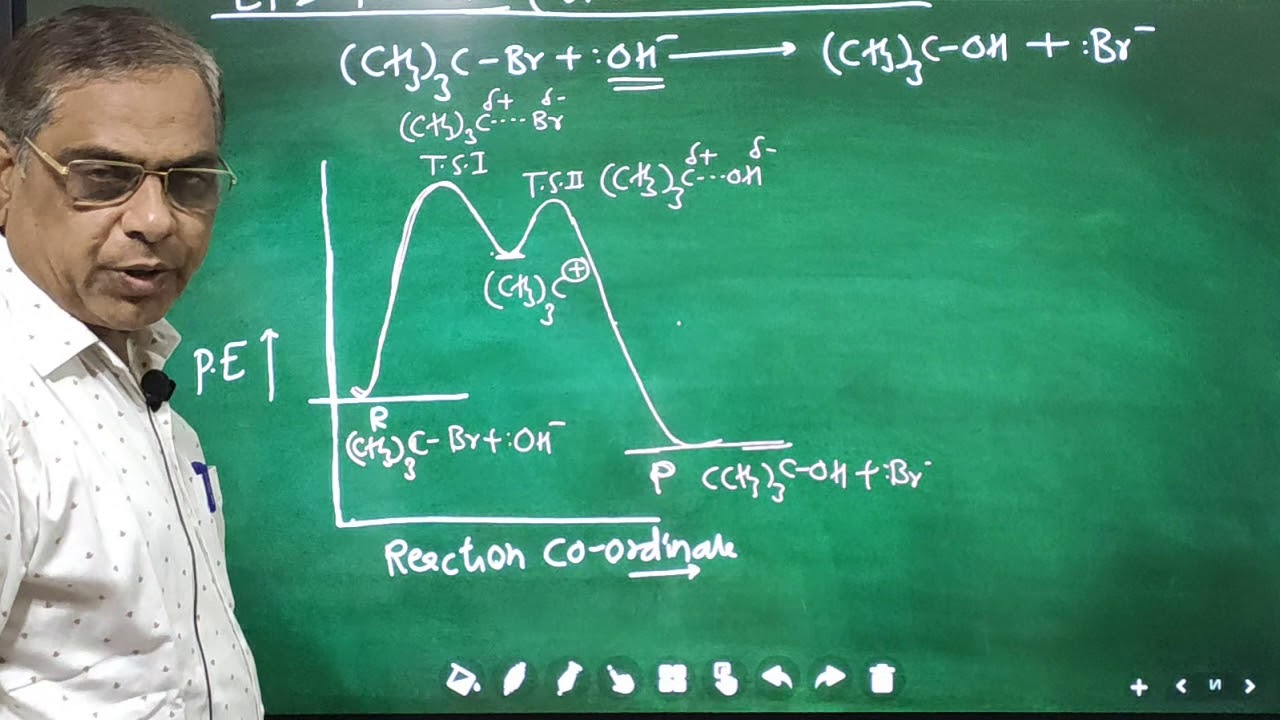 (CH3)3C-Br + :OH⁻ ⟶ (CH3)3C-OH + :Br⁻
(CH3)3C^δ+ ···· Br^δ-
T.S.I
T.S.II (CH3)3C^δ+ ··· OH^δ-
(CH3)3C⊕
P.E ↑
R
(CH3)3C-Br + :OH⁻
P (CH3)3C-OH + :Br⁻
Reaction Co-ordinate →